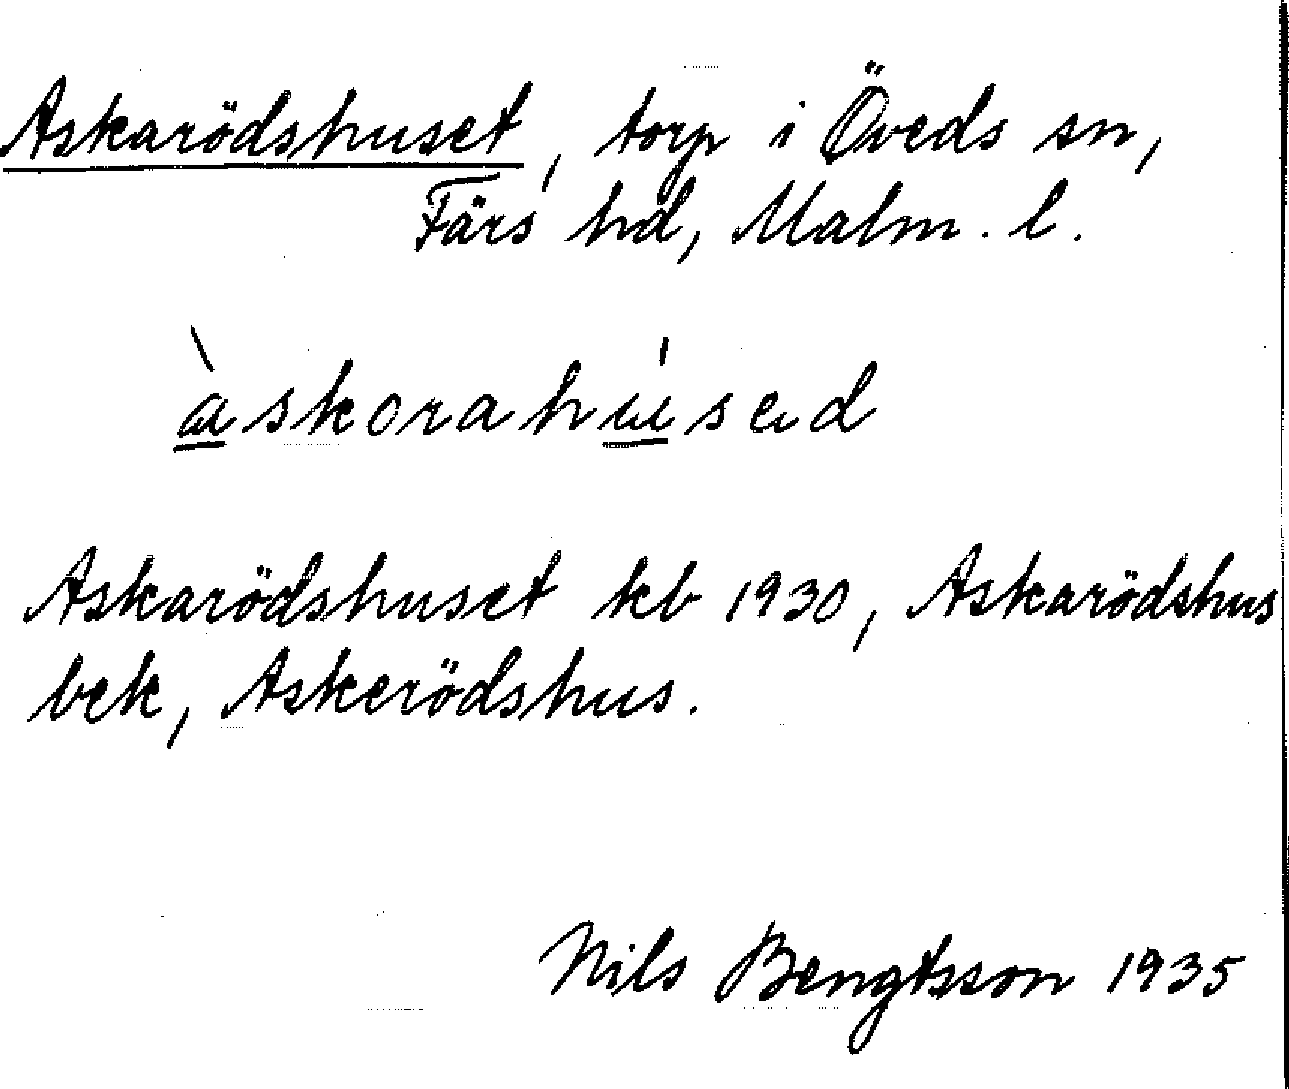 Askarödshuset, torp i Öveds sn,
Färs hd, Malm. l.
àskorahúsed
Askarödshuset kb 1930, Askarödshus
bek, Askerödshus.
Nils Bengtsson 1935